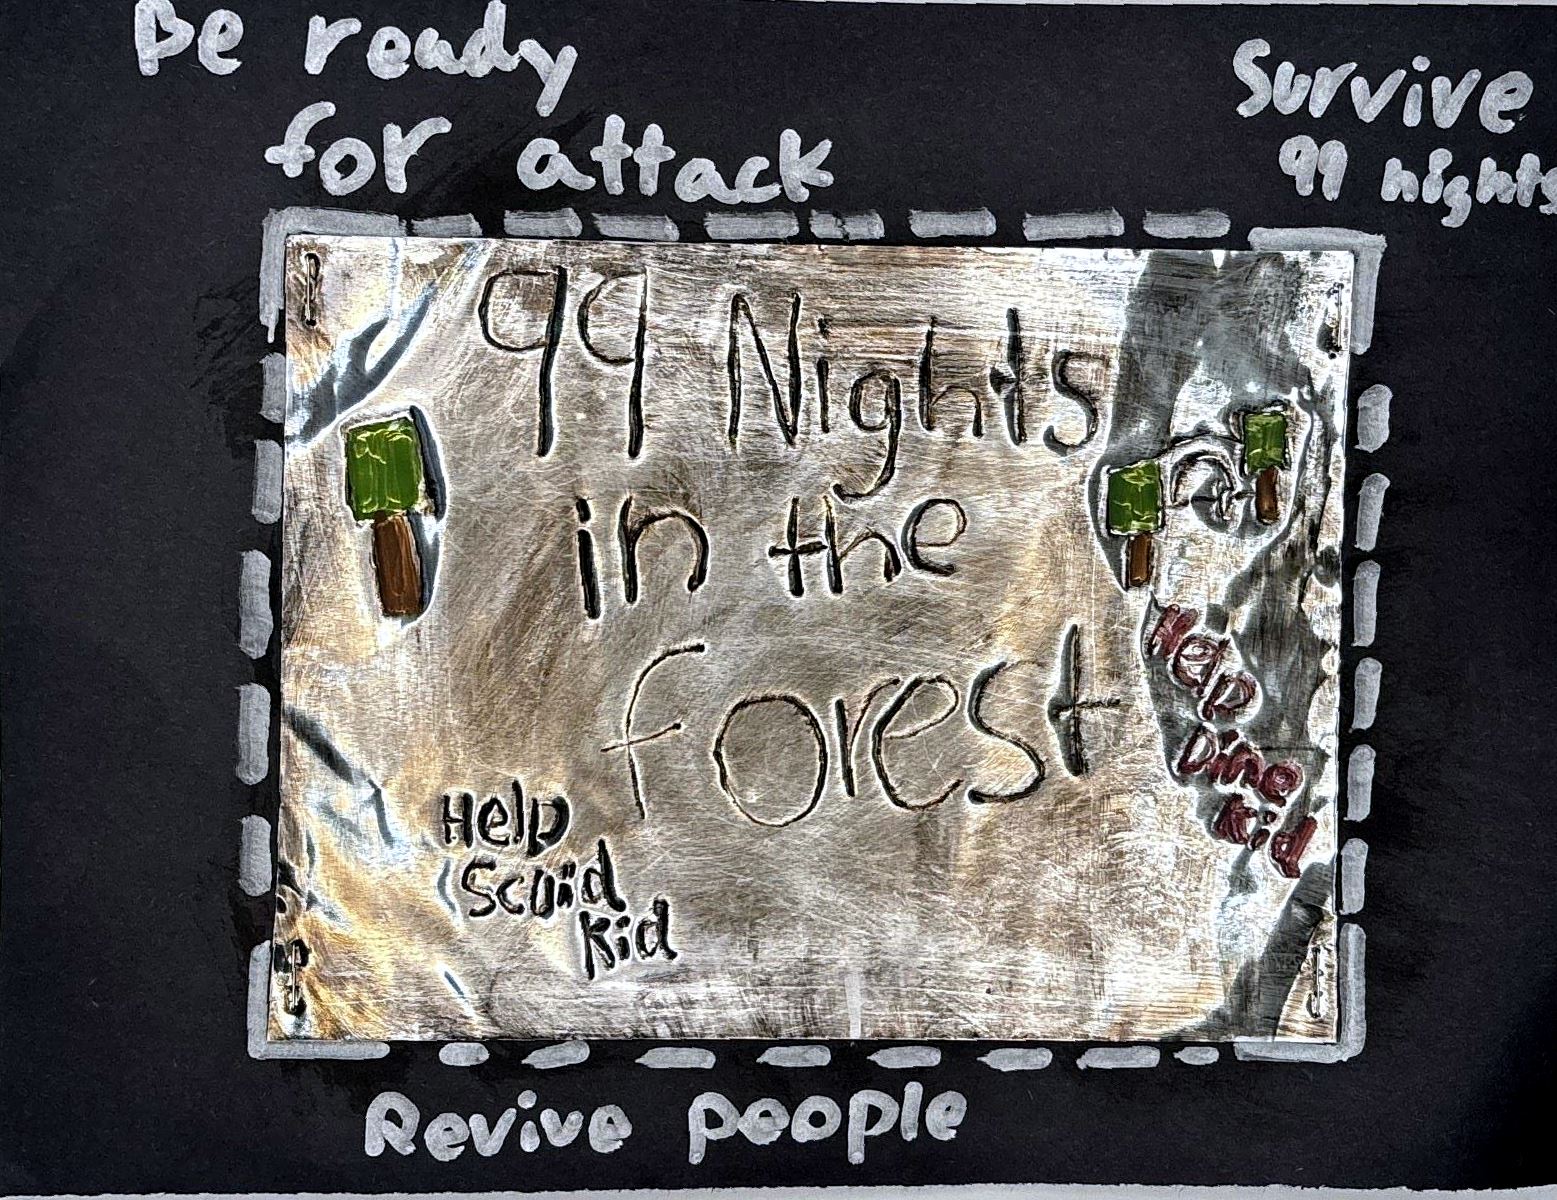 Be ready
for attack
Survive
99 nights
99 Nights
in the
forest
Help
Dino
kid
Help
Scuid
kid
Revive people